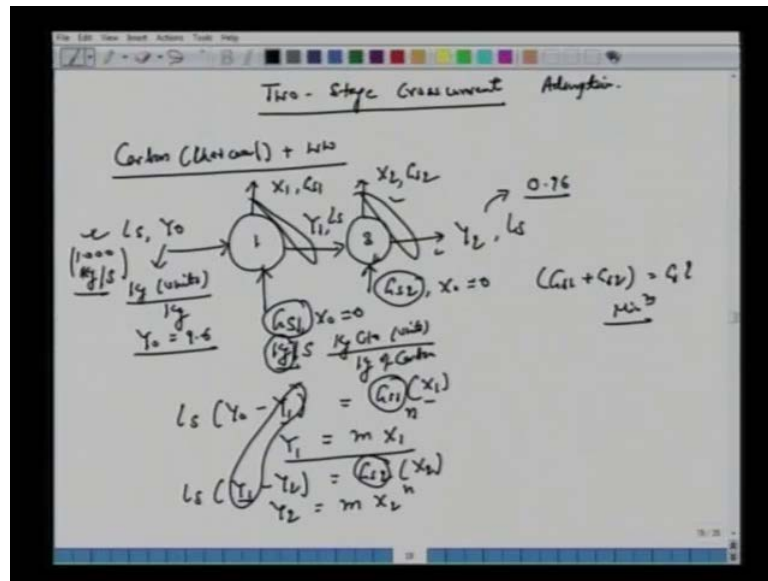 File Edit View Insert Actions Tools Help
Two-Stage Crosscurrent Adsorption.
Carbon (Charcoal) + WW
X1, GS1
X2, GS2
0.96
LS, Y0
1
Y1, LS
2
Y2, LS
(1000 kg/s)
kg (units) / kg
GS1, X0=0
GS2, X0=0
(GS1 + GS2) = GS ?
Min^m
Y0 = 9.6
kg/S
kg C/o (units) / kg of Carbon
LS (Y0 - Y1) = GS1 (X1)
Y1 = m X1^n
LS (Y1 - Y2) = GS2 (X2)
Y2 = m X2^n